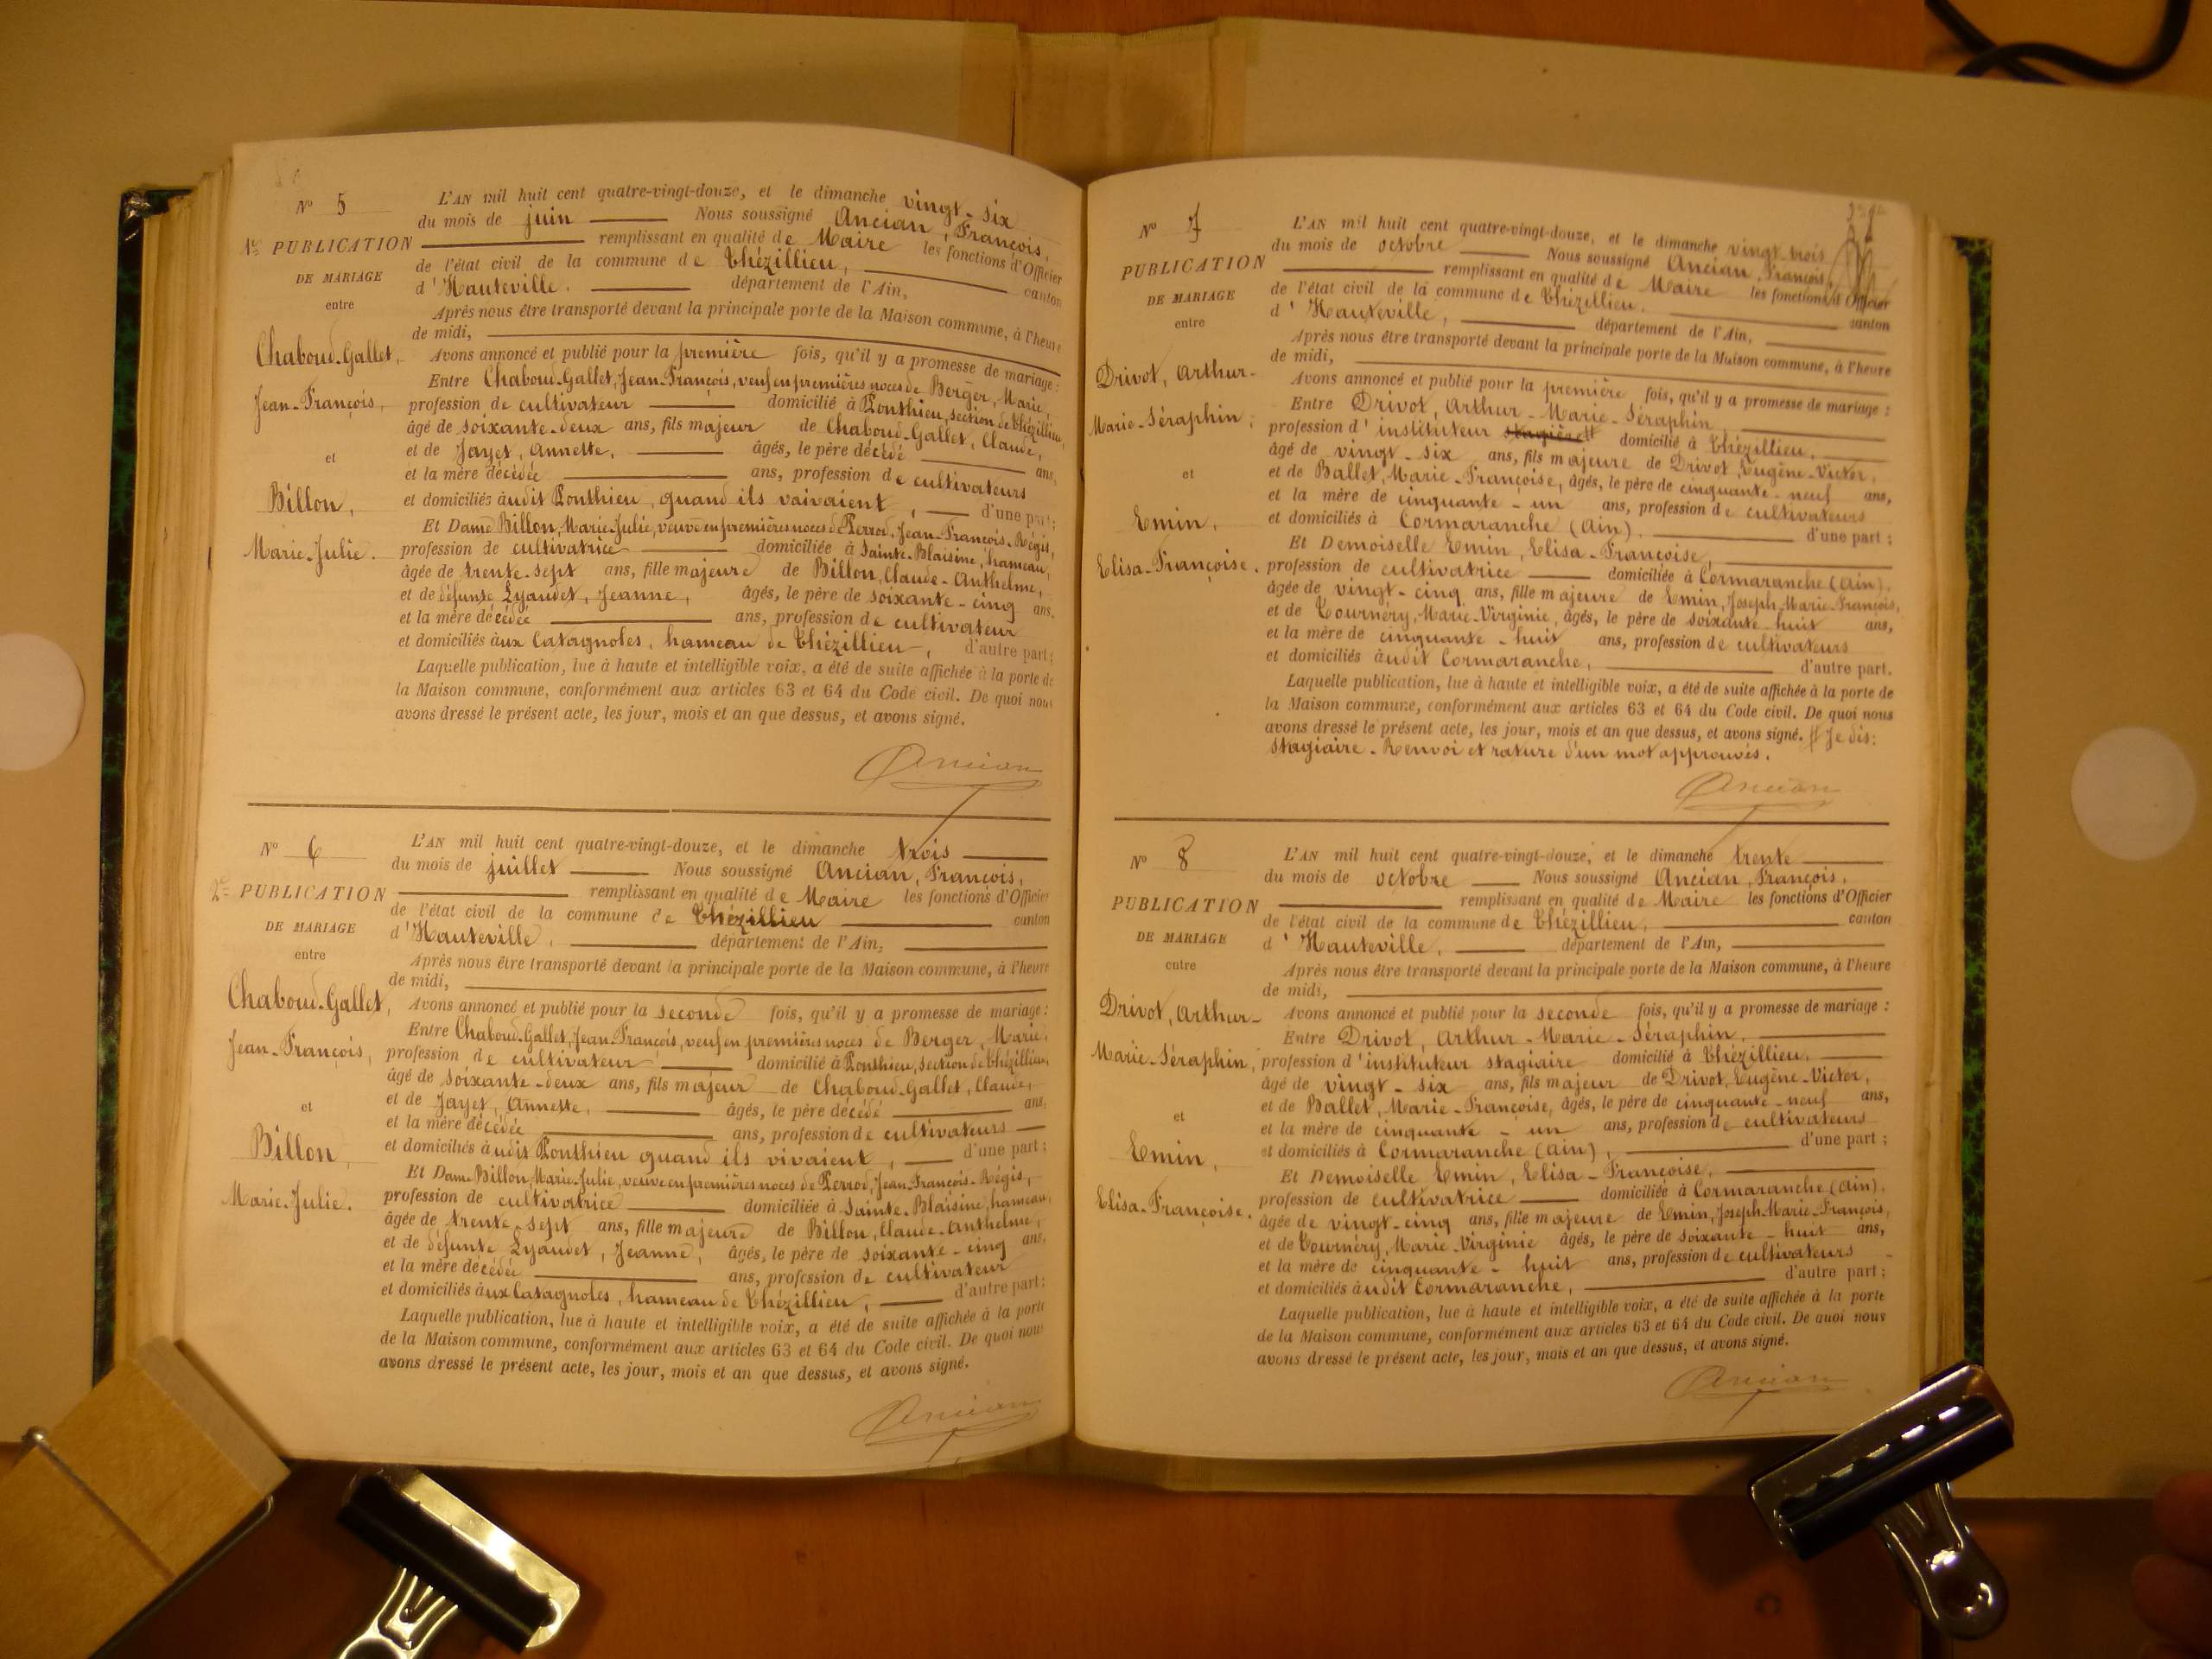 N° 5
1re PUBLICATION
DE MARIAGE
entre
Chaboud-Gallet,
Jean-François,
et
Billon,
Marie-Julie.
L'AN mil huit cent quatre-vingt-douze, et le dimanche vingt-six
du mois de juin Nous soussigné Ancian, François,
remplissant en qualité de Maire les fonctions d'Officier
de l'état civil de la commune de Thézillieu, canton
d'Hauteville. département de l'Ain,
Après nous être transporté devant la principale porte de la Maison commune, à l'heure
de midi,
Avons annoncé et publié pour la première fois, qu'il y a promesse de mariage :
Entre Chaboud-Gallet, Jean-François, veuf en premières noces de Berger, Marie,
profession de cultivateur domicilié à Ponthieu, section de Thézillieu,
âgé de soixante-deux ans, fils majeur de Chaboud-Gallet, Claude,
et de Jayet, Annette, âgés, le père décédé ans,
et la mère décédée ans, profession de cultivateurs
et domiciliés àudit Ponthieu, quand ils vaivaient, d'une part;
Et Dame Billon, Marie-Julie, veuve en premières noces de Perrod, Jean-François-Régis,
profession de cultivatrice domiciliée à Sainte-Blaisine, hameau,
âgée de trente-sept ans, fille majeure de Billon, Claude-Anthelme,
et de défunte Lyaudet, Jeanne, âgés, le père de soixante-cinq ans,
et la mère décédée ans, profession de cultivateur
et domiciliés àux Catagnoles, hameau de Thézillieu, d'autre part;
Laquelle publication, lue à haute et intelligible voix, a été de suite affichée à la porte de
la Maison commune, conformément aux articles 63 et 64 du Code civil. De quoi nous
avons dressé le présent acte, les jour, mois et an que dessus, et avons signé.
Ancian
N° 6
2e PUBLICATION
DE MARIAGE
entre
Chaboud-Gallet,
Jean-François,
et
Billon,
Marie-Julie.
L'AN mil huit cent quatre-vingt-douze, et le dimanche trois
du mois de juillet Nous soussigné Ancian, François,
remplissant en qualité de Maire les fonctions d'Officier
de l'état civil de la commune de Thézillieu canton
d'Hauteville, département de l'Ain,
Après nous être transporté devant la principale porte de la Maison commune, à l'heure
de midi,
Avons annoncé et publié pour la seconde fois, qu'il y a promesse de mariage :
Entre Chaboud-Gallet, Jean-François, veuf en premières noces de Berger, Marie,
profession de cultivateur domicilié à Ponthieu, section de Thézillieu,
âgé de soixante-deux ans, fils majeur de Chaboud-Gallet, Claude,
et de Jayet, Annette, âgés, le père décédé ans,
et la mère décédée ans, profession de cultivateurs
et domiciliés àudit Ponthieu quand ils vivaient, d'une part ;
Et Dame Billon, Marie-Julie, veuve en premières noces de Perrod, Jean-François-Régis,
profession de cultivatrice domiciliée à Sainte-Blaisine, hameau,
âgée de trente-sept ans, fille majeure de Billon, Claude-Anthelme,
et de défunte Lyaudet, Jeanne, âgés, le père de soixante-cinq ans,
et la mère décédée ans, profession de cultivateur
et domiciliés àux Catagnoles, hameau de Thézillieu, d'autre part ;
Laquelle publication, lue à haute et intelligible voix, a été de suite affichée à la porte
de la Maison commune, conformément aux articles 63 et 64 du Code civil. De quoi nous
avons dressé le présent acte, les jour, mois et an que dessus, et avons signé.
Ancian
N° 7
PUBLICATION
DE MARIAGE
entre
Drivot, Arthur-
Marie-Séraphin ;
et
Emin,
Elisa-Françoise.
L'AN mil huit cent quatre-vingt-douze, et le dimanche vingt-trois
du mois de octobre Nous soussigné Ancian, François,
remplissant en qualité de Maire les fonctions d'Officier
de l'état civil de la commune de Thézillieu, canton
d'Hauteville, département de l'Ain,
Après nous être transporté devant la principale porte de la Maison commune, à l'heure
de midi,
Avons annoncé et publié pour la première fois, qu'il y a promesse de mariage :
Entre Drivot, Arthur-Marie-Séraphin,
profession d'instituteur domicilié à Thézillieu,
âgé de vingt-six ans, fils majeure de Drivot, Eugène-Victor,
et de Ballet, Marie-Françoise, âgés, le père de cinquante-neuf ans,
et la mère de cinquante-un ans, profession de cultivateurs
et domiciliés à Cormaranche (Ain), d'une part ;
Et Demoiselle Emin, Elisa-Françoise,
profession de cultivatrice domiciliée à Cormaranche (Ain),
âgée de vingt-cinq ans, fille majeure de Emin, Joseph-Marie-François,
et de Tournéry, Marie-Virginie, âgés, le père de soixante-huit ans,
et la mère de cinquante-huit ans, profession de cultivateurs
et domiciliés àudit Cormaranche, d'autre part.
Laquelle publication, lue à haute et intelligible voix, a été de suite affichée à la porte de
la Maison commune, conformément aux articles 63 et 64 du Code civil. De quoi nous
avons dressé le présent acte, les jour, mois et an que dessus, et avons signé. # Je dis:
stagiaire. Renvoi et rature d'un mot approuvés.
Ancian
N° 8
PUBLICATION
DE MARIAGE
entre
Drivot, Arthur-
Marie-Séraphin,
et
Emin,
Elisa-Françoise.
L'AN mil huit cent quatre-vingt-douze, et le dimanche trente
du mois de octobre Nous soussigné Ancian, François,
remplissant en qualité de Maire les fonctions d'Officier
de l'état civil de la commune de Thézillieu, canton
d'Hauteville, département de l'Ain,
Après nous être transporté devant la principale porte de la Maison commune, à l'heure
de midi,
Avons annoncé et publié pour la seconde fois, qu'il y a promesse de mariage :
Entre Drivot, Arthur-Marie-Séraphin,
profession d'instituteur stagiaire domicilié à Thézillieu,
âgé de vingt-six ans, fils majeur de Drivot, Eugène-Victor,
et de Ballet, Marie-Françoise, âgés, le père de cinquante-neuf ans,
et la mère de cinquante-un ans, profession de cultivateurs
et domiciliés à Cormaranche (Ain), d'une part ;
Et Demoiselle Emin, Elisa-Françoise,
profession de cultivatrice domiciliée à Cormaranche (Ain),
âgée de vingt-cinq ans, fille majeure de Emin, Joseph-Marie-François,
et de Tournéry, Marie-Virginie âgés, le père de soixante-huit ans,
et la mère de cinquante-huit ans, profession de cultivateurs
et domiciliés àudit Cormaranche, d'autre part ;
Laquelle publication, lue à haute et intelligible voix, a été de suite affichée à la porte
de la Maison commune, conformément aux articles 63 et 64 du Code civil. De quoi nous
avons dressé le présent acte, les jour, mois et an que dessus, et avons signé.
Ancian